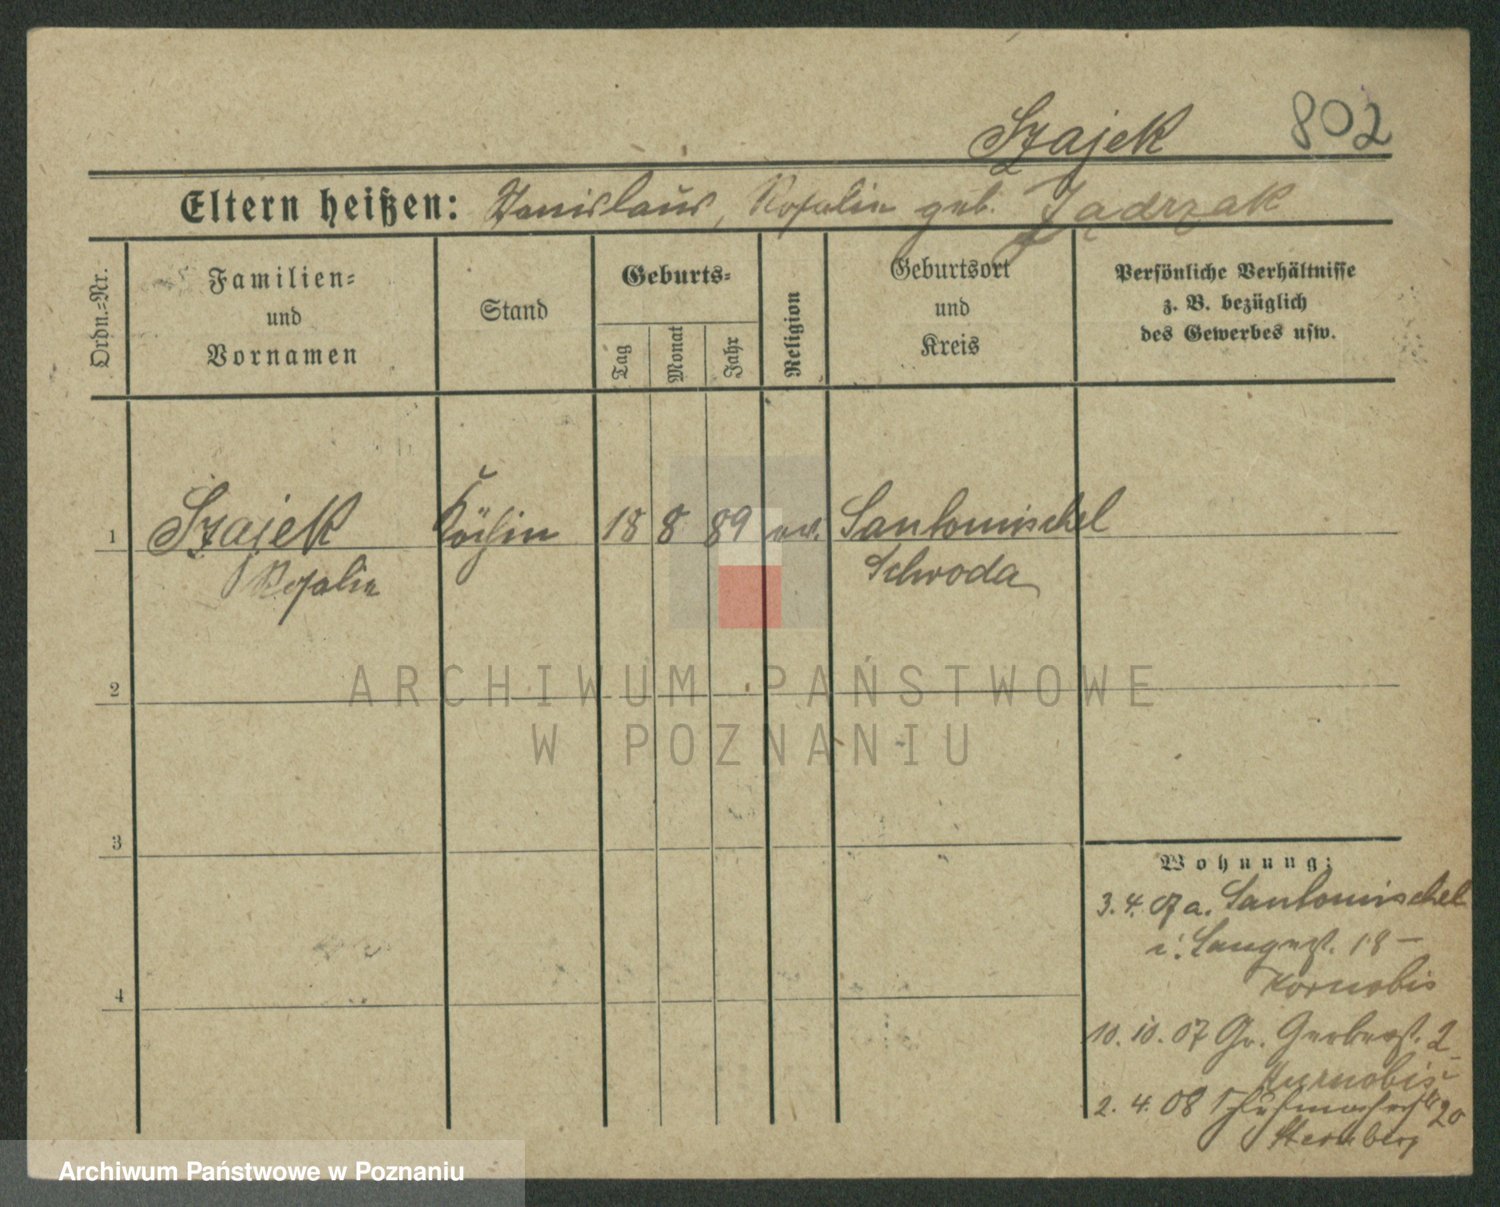 Szajek 802
Eltern heißen: Stanislaus, Rosalie geb. Jądrzak
Ordn.-Nr.
Familien-
und
Vornamen
Stand
Geburts-
Tag
Monat
Jahr
Religion
Geburtsort
und
Kreis
Persönliche Verhältnisse
z. B. bezüglich
des Gewerbes usw.
1 Szajek Köchin 18 8 89 Santomischel
Rosalie Schroda
2
3
4
ARCHIWUM PAŃSTWOWE
W POZNANIU
Wohnung:
3. 4. 07 a. Santomischel
i. Langest. 18 –
Kornobis
10. 10. 07 Gr. Gerberst. 2 –
Kurnobis
2. 4. 08 20
Sternberg
Archiwum Państwowe w Poznaniu